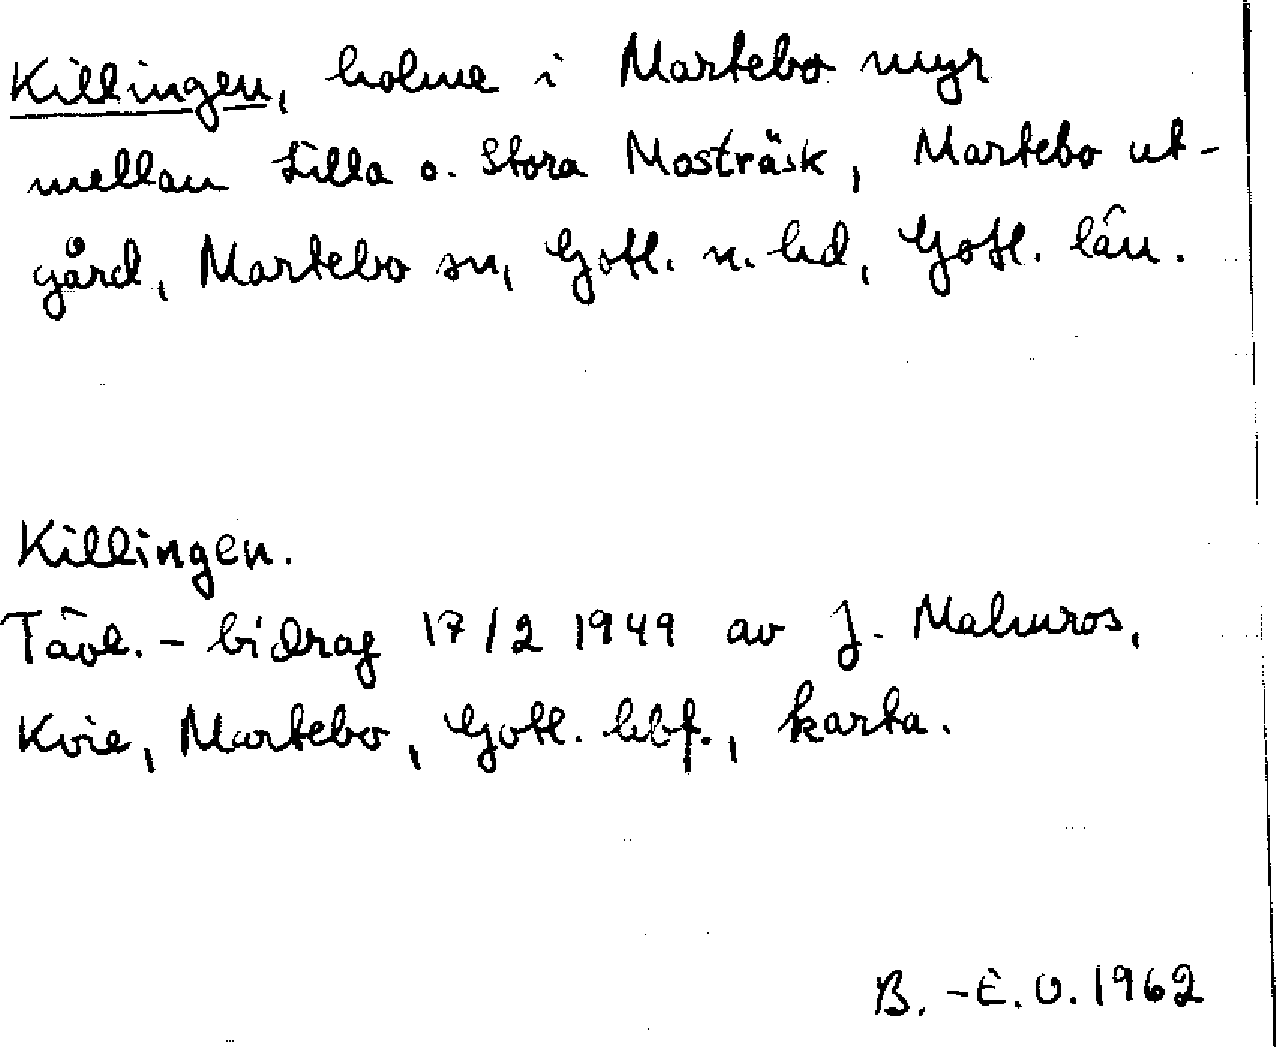 Killingen, holme i Martebo myr
mellan Lilla o. Stora Mosträsk, Martebo ut-
gård, Martebo sn, Gotl. n. hd, Gotl. län.
Killingen.
Tävl.-bidrag 17/2 1949 av J. Malmros,
Kvie, Martebo, Gotl. hbf., karta.
B.-E.O. 1962